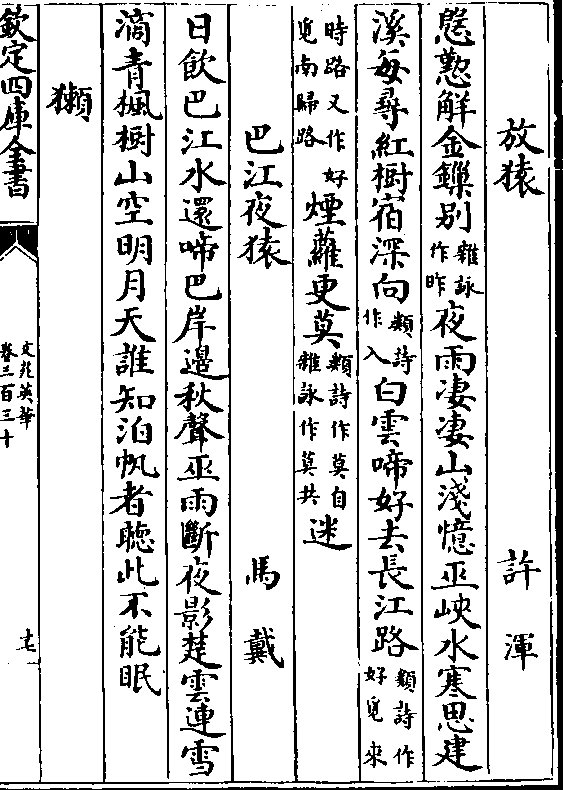 放猿　許渾
慇懃解金鏁别雜詠作昨夜雨凄凄山淺憶巫峽水寒思建
溪每尋紅樹宿深向類詩作入白雲啼好去長江路類詩作好覓來
時路又作好覓南歸路煙蘿更莫類詩作莫自雜詠作莫共迷
巴江夜猿　馬戴
日飲巴江水還啼巴岸邉秋聲巫雨斷夜影楚雲連雪
滴青楓樹山空明月天誰知泊帆者聴此不能眠
獺
欽定四庫全書
文苑英華
卷三百三十
十七